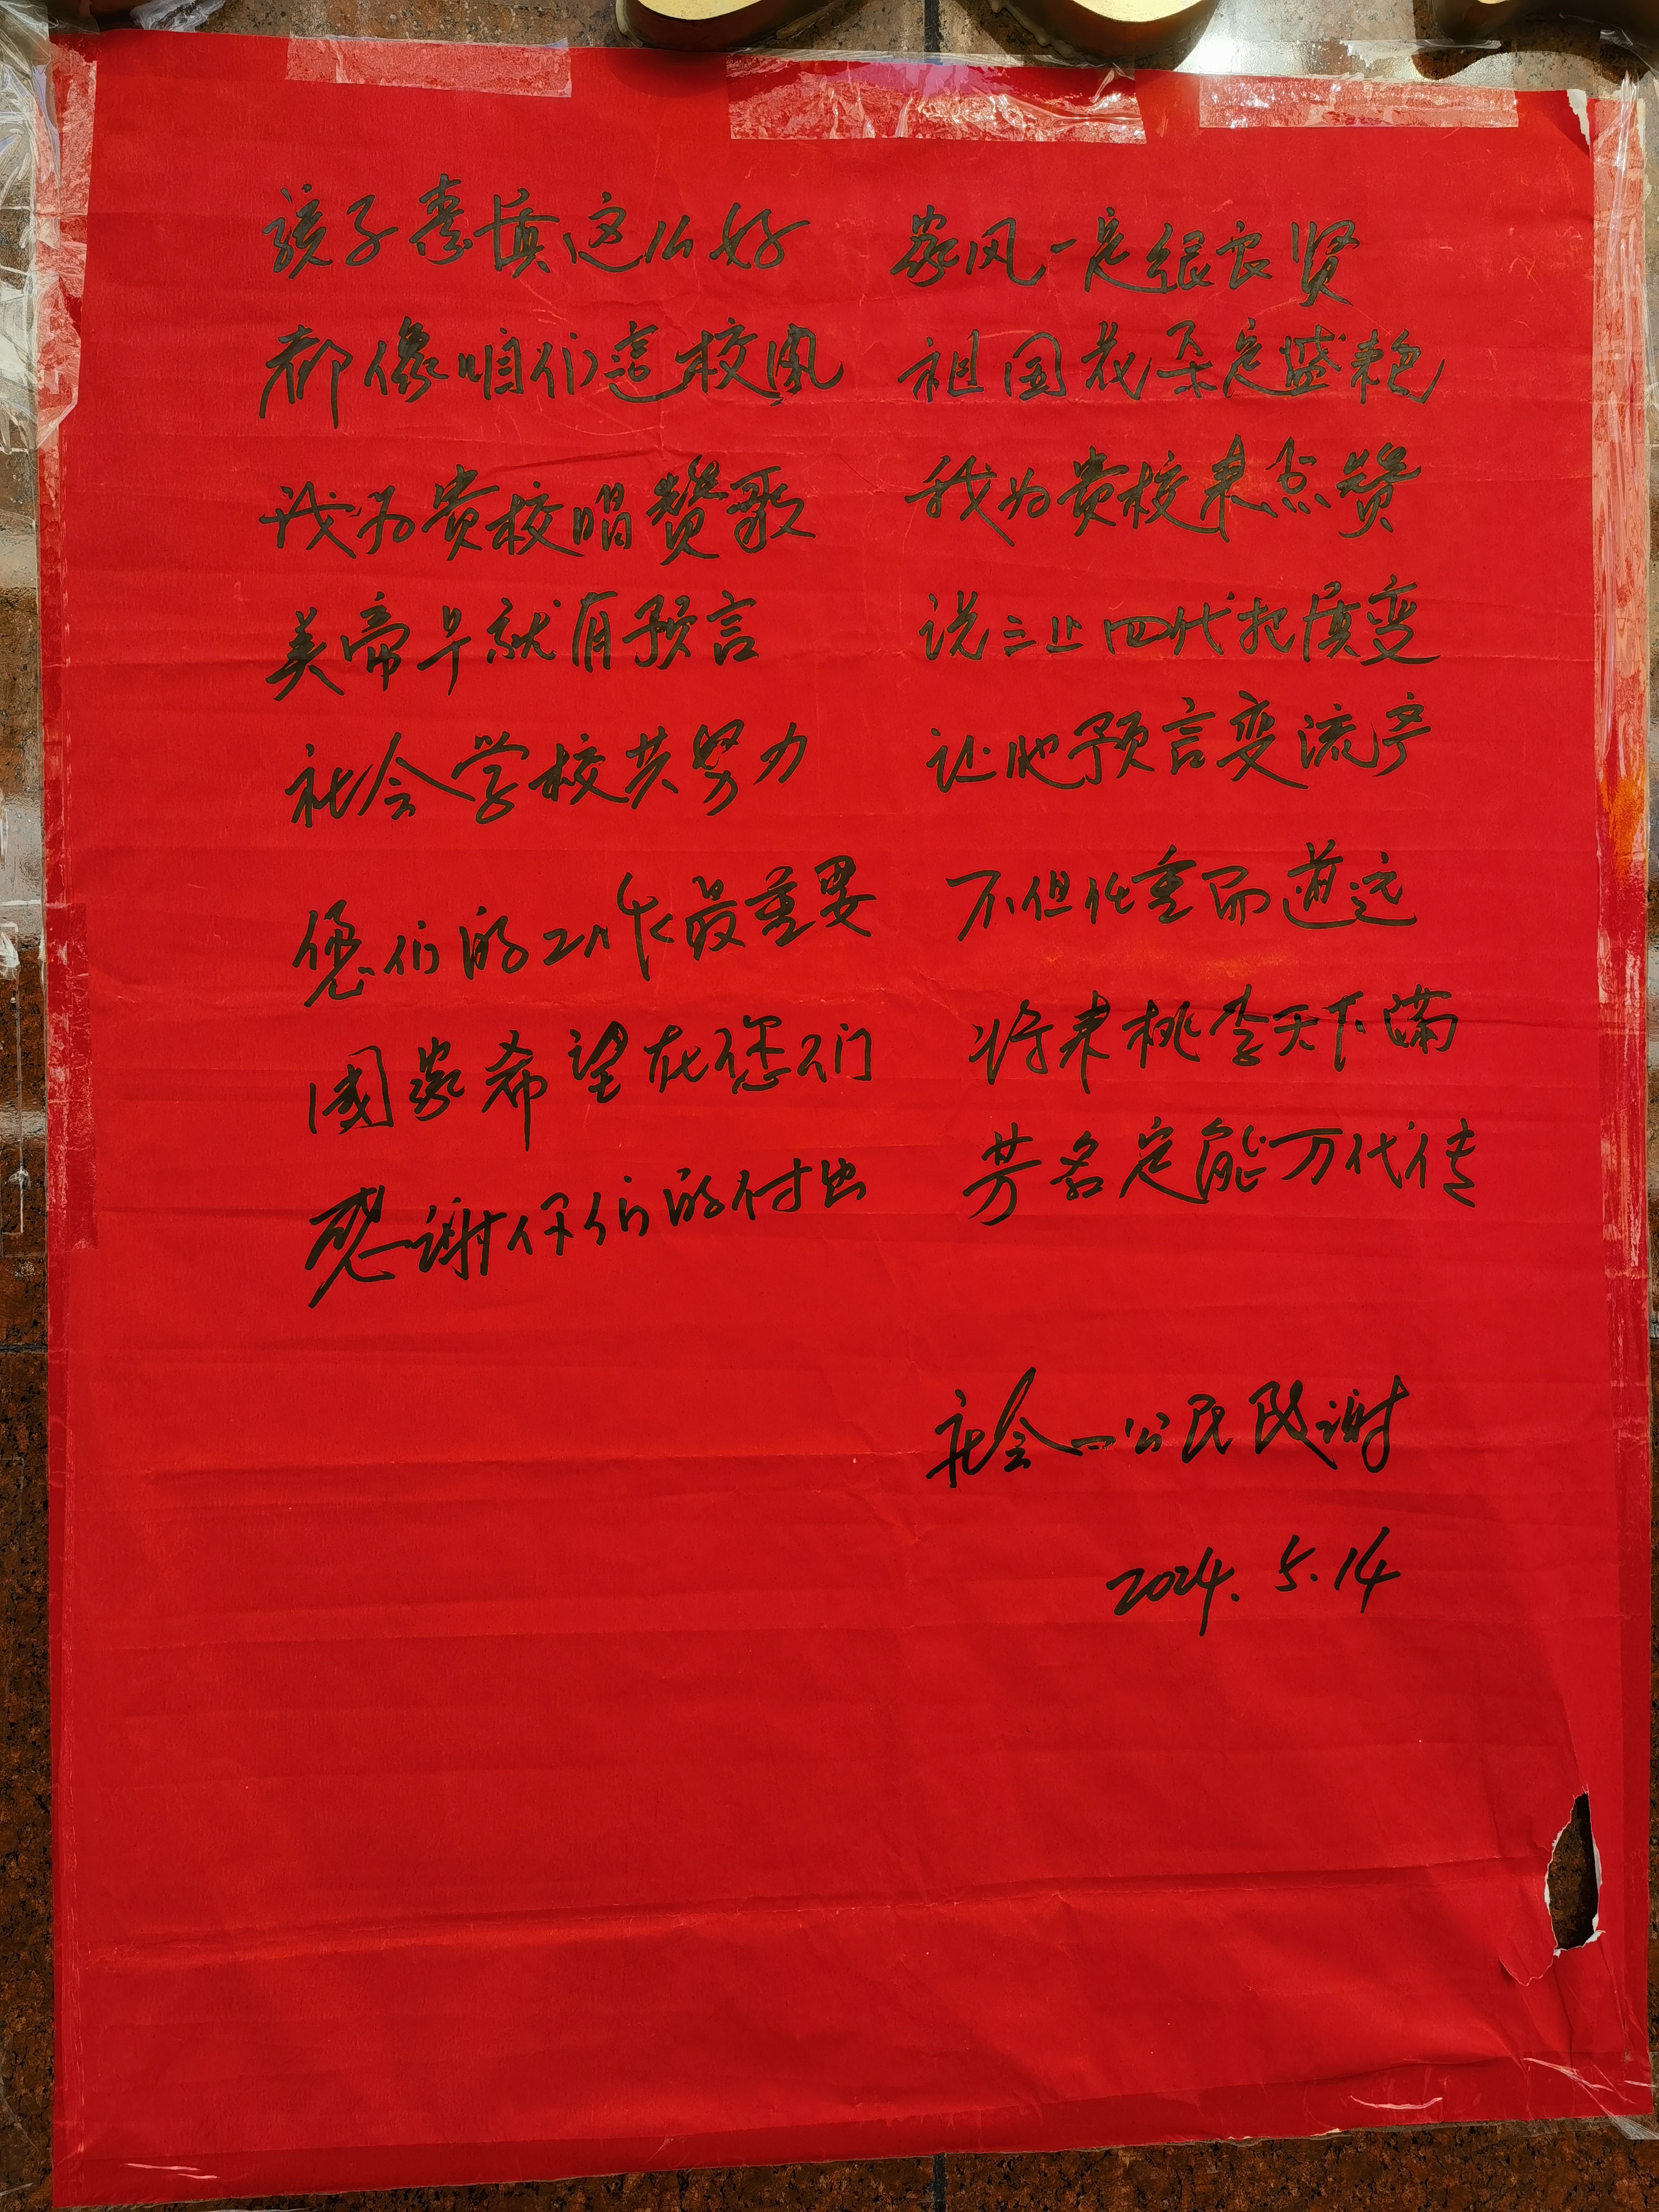 孩子素质这么好 家风一定很良贤
都像咱们这校风 祖国花朵定盛艳
我为贵校唱赞歌 我为贵校来点赞
美帝早就有预言 说三止四代把质变
社会学校共努力 让他预言变流产
您们的工作最重要 不但任重而道远
國家希望在您们 将来桃李天下满
感谢你们的付出 芳名定能万代传
社会一公民感谢
2024.5.14